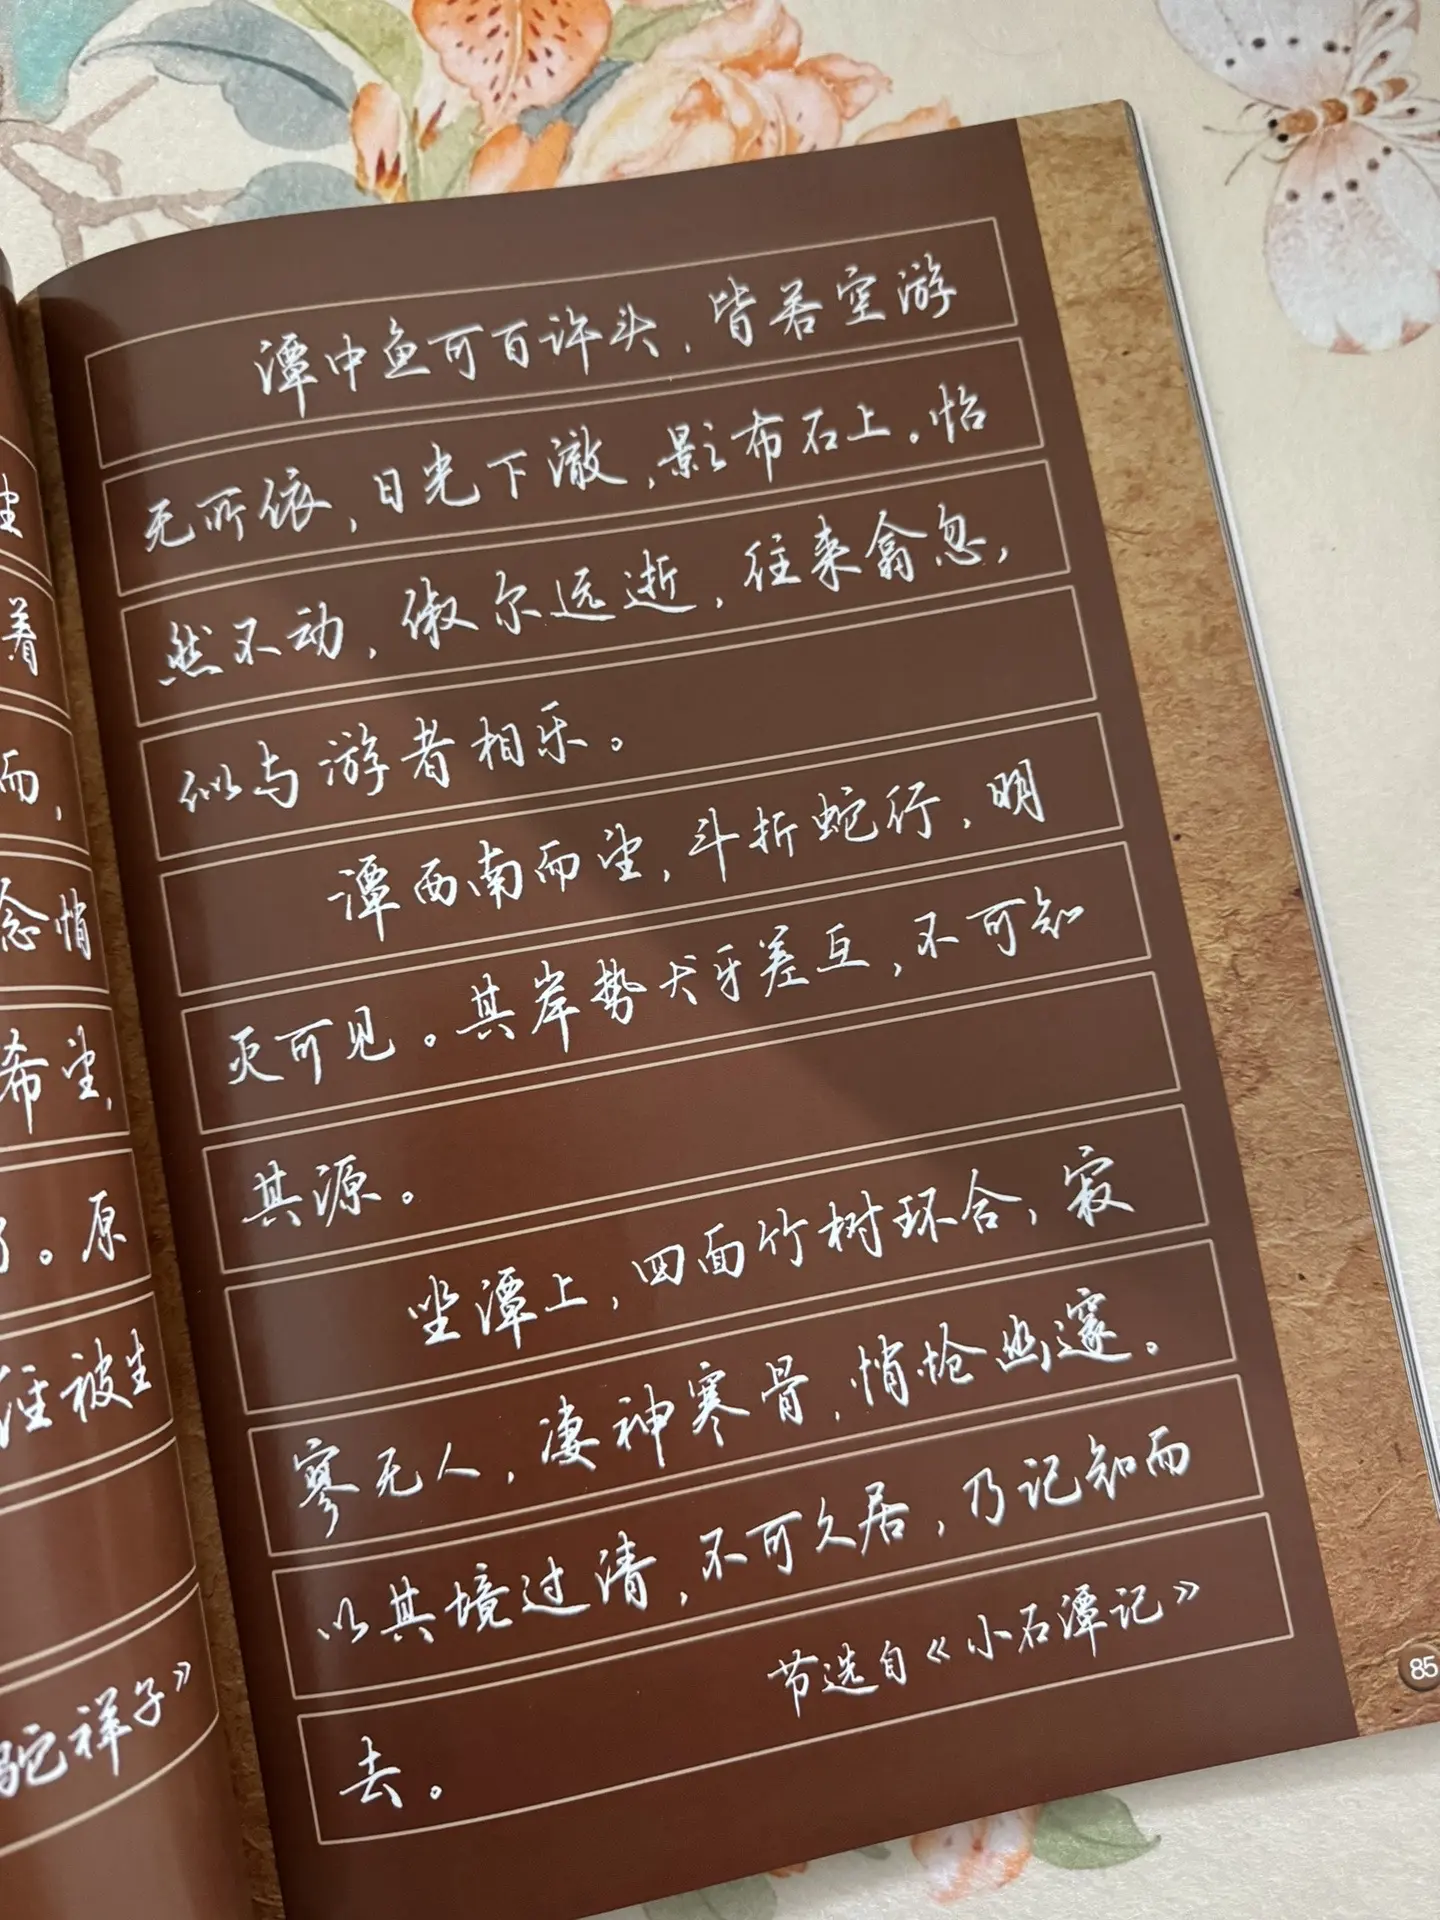 坐
着
而，
念悄
希望，
了。原
往被生
驼祥子》
潭中鱼可百许头，皆若空游
无所依，日光下澈，影布石上。怡
然不动，俶尔远逝，往来翕忽，
似与游者相乐。
潭西南而望，斗折蛇行，明
灭可见。其岸势犬牙差互，不可知
其源。
坐潭上，四面竹树环合，寂
寥无人，凄神寒骨，悄怆幽邃。
以其境过清，不可久居，乃记知而
节选自《小石潭记》
去。
85